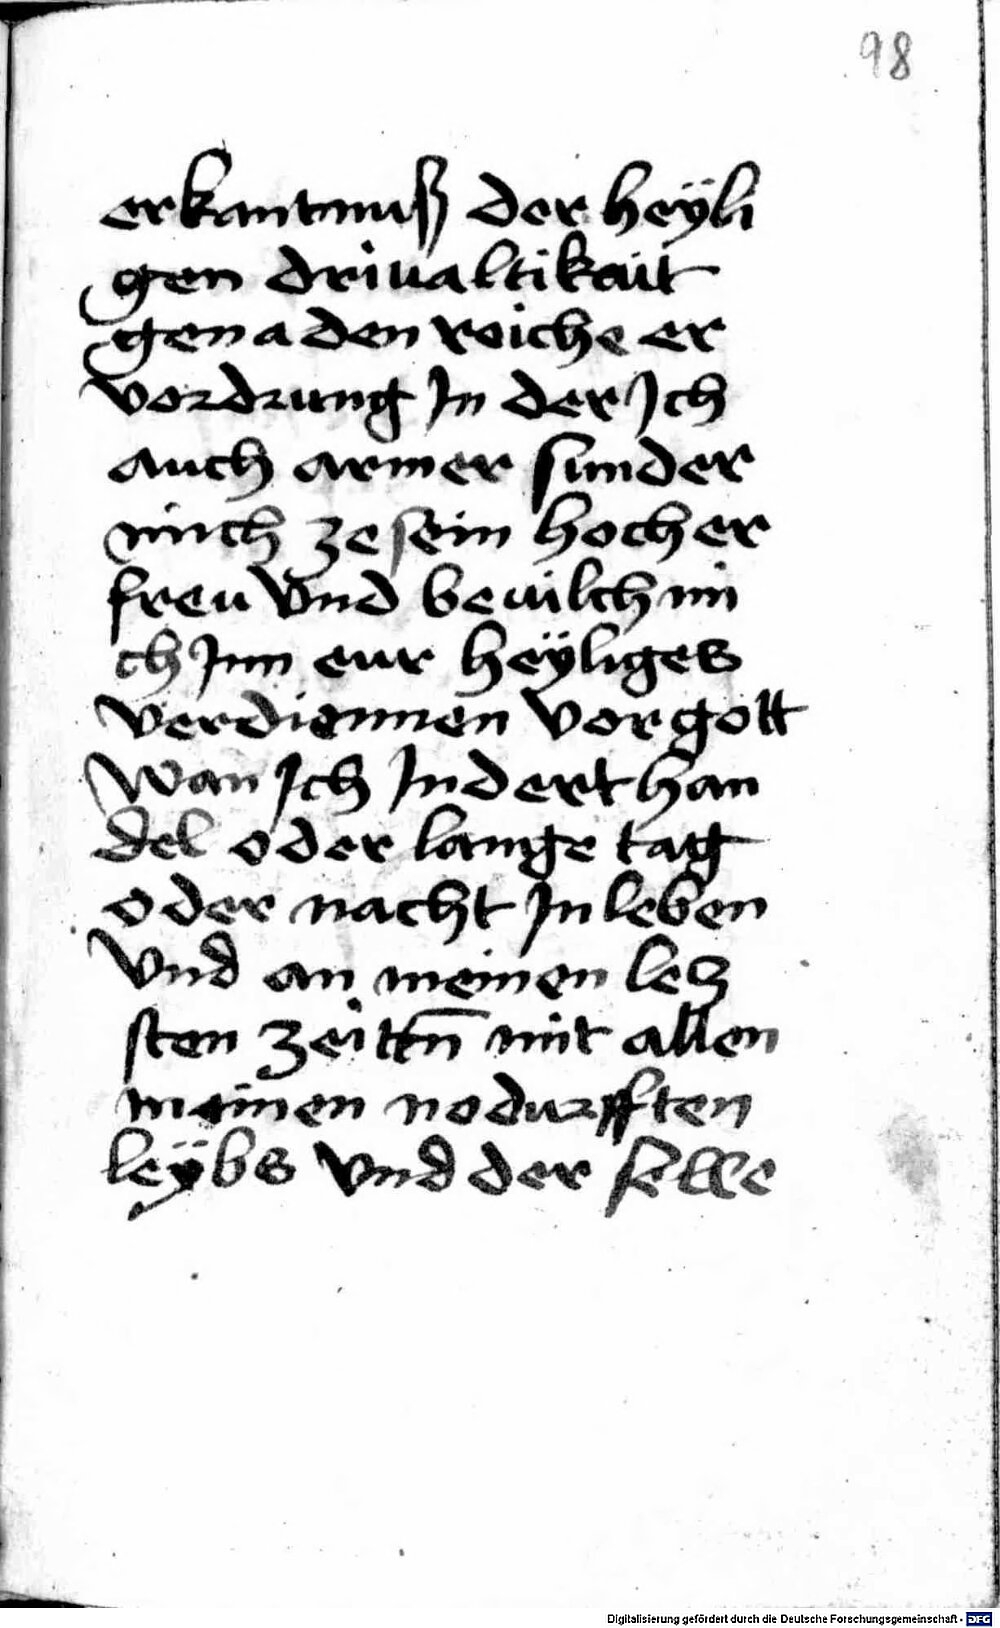 98
erkantnuß der heÿli
gen drivaltikait
genaden reiche er
vordrung In der Ich
auch armer sunder
mich ze sein hoch er
freu Vnd beuilch mi
ch Inn eur heÿliges
verdiennen vor gott
Wan Ich In dert han
del oder lange tag
oder nacht In leben
Vnd an meinen lecz
sten zeittn̄ mit allen
meinen nodurfften
leÿbs vnd der selle
Digitalisierung gefördert durch die Deutsche Forschungsgemeinschaft - DFG